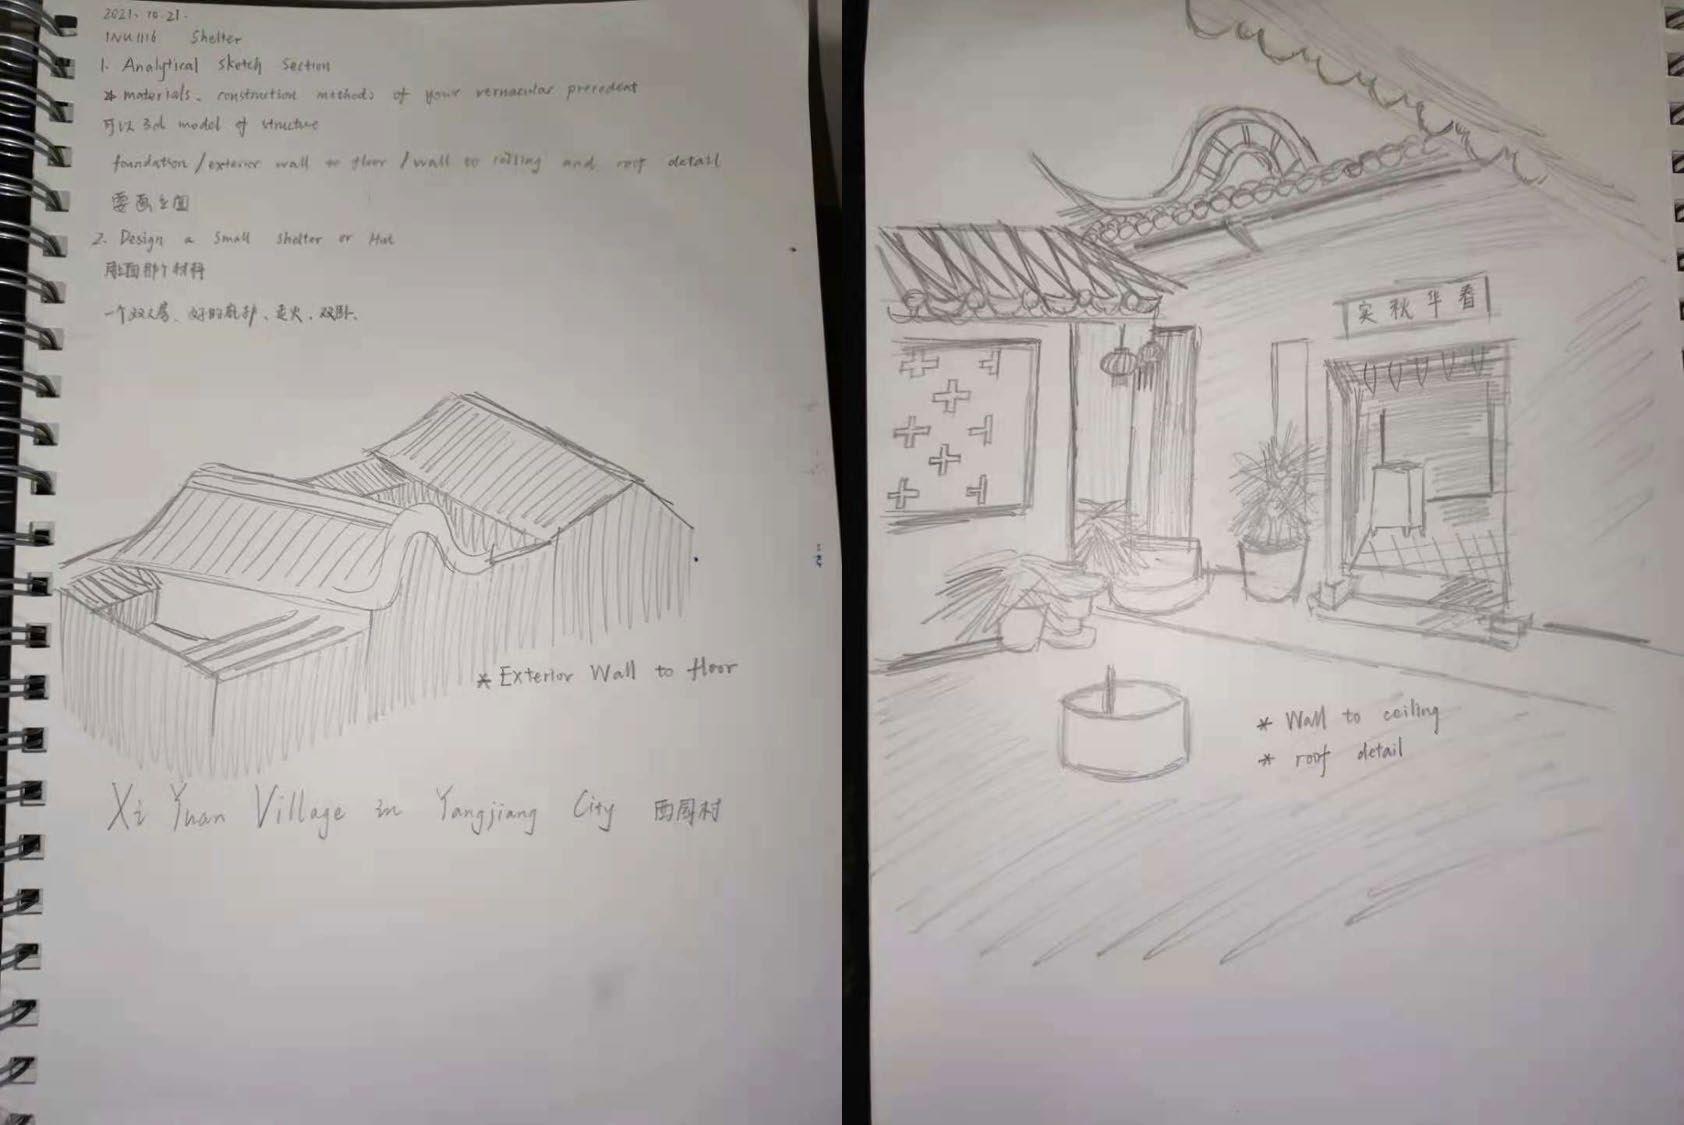 2021. 10. 21.
INU1116 Shelter
1. Analytical Sketch Section
* materials、construction methods of your vernacular precedent
可以 3d model of structure
foundation / exterior wall to floor / wall to ceiling and roof detail
要画
2. Design a Small shelter or Hut
材料
一个双人房、好的、走火、双卧、
* Exterior Wall to floor
Xi Yuan Village in Yangjiang City 西园村
实秋华看
* Wall to ceiling
* roof detail